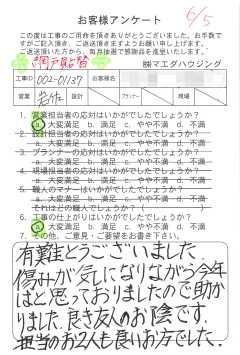 お客様アンケート
6/5
この度は工事のご用命を頂きありがとうございました。お手数で
すがご記入頂き、ご返送頂きますようお願い申し上げます。
ご返送頂いた方から、毎月抽選で感謝品を進呈いたします。
網戸貼替
㈱マエダハウジング
工事ID 002-01137 お客様名
営業 岩佐 設計 プランナー 現場
1. 営業担当者の対応はいかがでしたでしょうか?
a. 大変満足 b. 満足 c. やや不満 d. 不満
2.
a. 大変満足 b. 満足 c. やや不満 d. 不満
3. プランナーの対応はいかがでしたでしょうか?
a. 大変満足 b. 満足 c. やや不満 d. 不満
4. 現場担当者の対応はいかがでしたでしょうか?
a. 大変満足 b. 満足 c. やや不満 d. 不満
5. 職人のマナーはいかがでしたでしょうか?
a. 大変満足 b. 満足 c. やや不満 d. 不満
それはどの職人でしょうか?( )
6. 工事の仕上がりはいかがでしたでしょうか?
a. 大変満足 b. 満足 c. やや不満 d. 不満
7. その他、ご意見・ご要望をお書き下さい。
有難とうございました、
傷みが気になりながら今年
はと思っておりましたので助か
りました。良き友人のお陰です。
担当のお2人も良いお方でした。